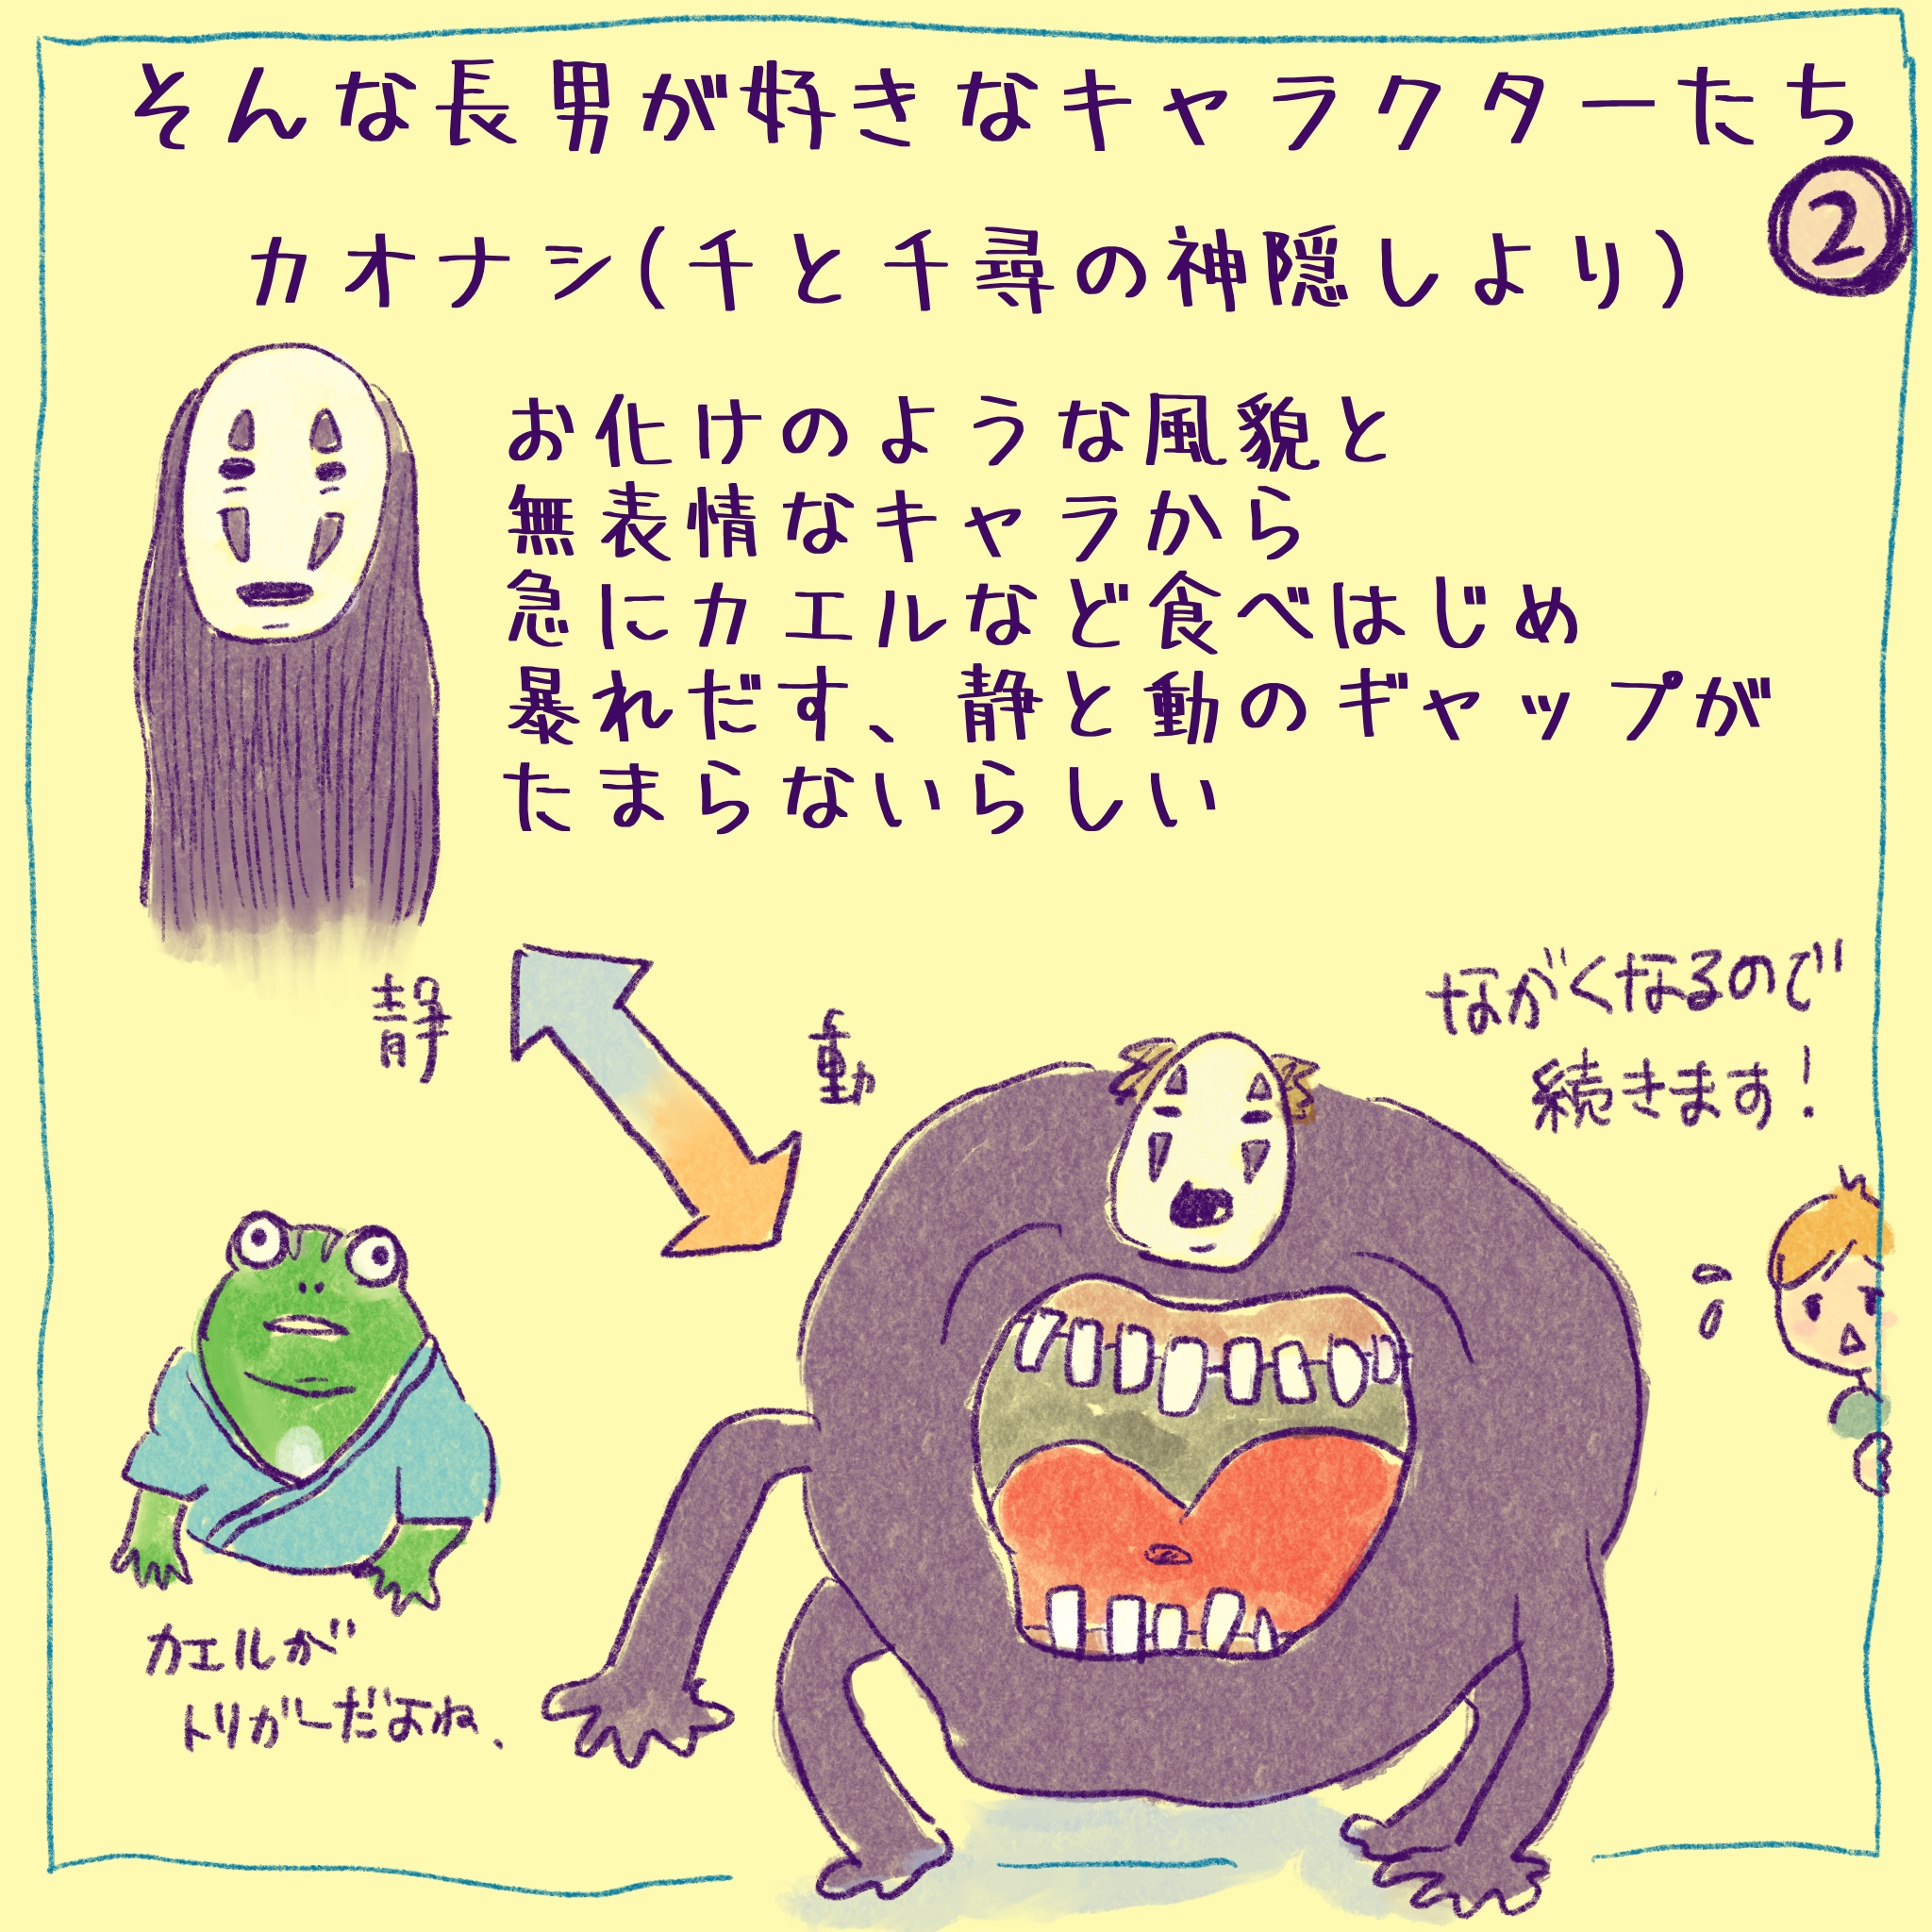 そんな長男が好きなキャラクターたち
②
カオナシ(千と千尋の神隠しより)
お化けのような風貌と
無表情なキャラから
急にカエルなど食べはじめ
暴れだす、静と動のギャップが
たまらないらしい
静
動
ながくなるので
続きます!
カエルが
トリガーだよね、